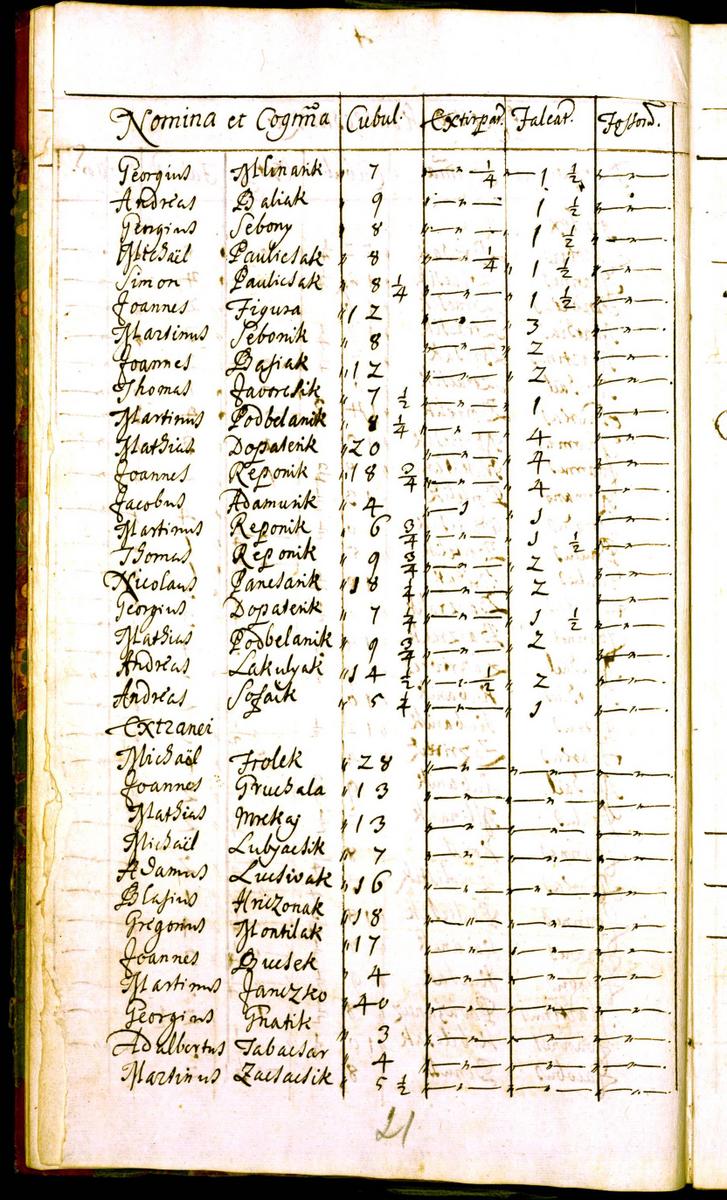 Nomina et Cogm̃a Cubul. Extirpat. Falcat. Fossor.
Georgius Mlinarik 7 " — " — 1/4 " — 1 1/2 " — " —
Andreas Baliak " 9 " — " — 1 1/2 " — " —
Georgius Sebony " 8 " — " — 1 1/2 " — " —
Michaël Paulicsak " 8 " — " — 1/4 " 1 1/2 " — " —
Simon Paulicsak " 8 1/4 " — " — 1 1/2 " — " —
Joannes Figura " 12 " — " — 3 " — " —
Martinus Sebonik " 8 " — " — 2 " — " —
Joannes Basiak " 12 " — " — 2 " — " —
Thomas Javorcsik " 7 1/2 " — " — 1 " — " —
Martinus Podbelanik " 8 1/4 " — " — 4 " — " —
Mathias Dopaterik " 20 " — " — 4 " — " —
Joannes Reponik " 18 3/4 " — " — 4 " — " —
Jacobus Adamurik " 4 " — 1 1 " — " —
Martinus Reponik " 6 3/4 " — " — 1 1/2 " — " —
Thomas Reponik " 9 3/4 " — " — 2 " — " —
Nicolaus Panesarik " 18 1/4 " — " — 2 " — " —
Georgius Dopaterik " 7 1/4 " — " — 1 1/2 " — " —
Mathias Podbelanik " 9 3/4 " — " — 2 " — " —
Andreas Lakulyak " 14 1/2 " — " — 1/2 2 " — " —
Andreas " 5 " — " — 1 " — " —
Extranei
Michaël Frolek " 28 " — " — " — " — " — " —
Joannes Gruchala " 13 " — " — " — " — " — " —
Mathias Mrekaj " 13 " — " — " — " — " — " —
Michaël Lubjacsik " 7 " — " — " — " — " — " —
Adamus Lucsivak " 16 " — " — " — " — " — " —
Blasius Hriczonak " 18 " — " — " — " — " — " —
Gregorius Montilak " 17 " — " — " — " — " — " —
Joannes Bucsek " 4 " — " — " — " — " — " —
Martinus Janczko " 40 " — " — " — " — " — " —
Georgius Gnatik " 3 " — " — " — " — " — " —
Adalbertus Tabacsar " 4 " — " — " — " — " — " —
Martinus Zacsacsik " 5 1/2 " — " — " — " — " — " —
21